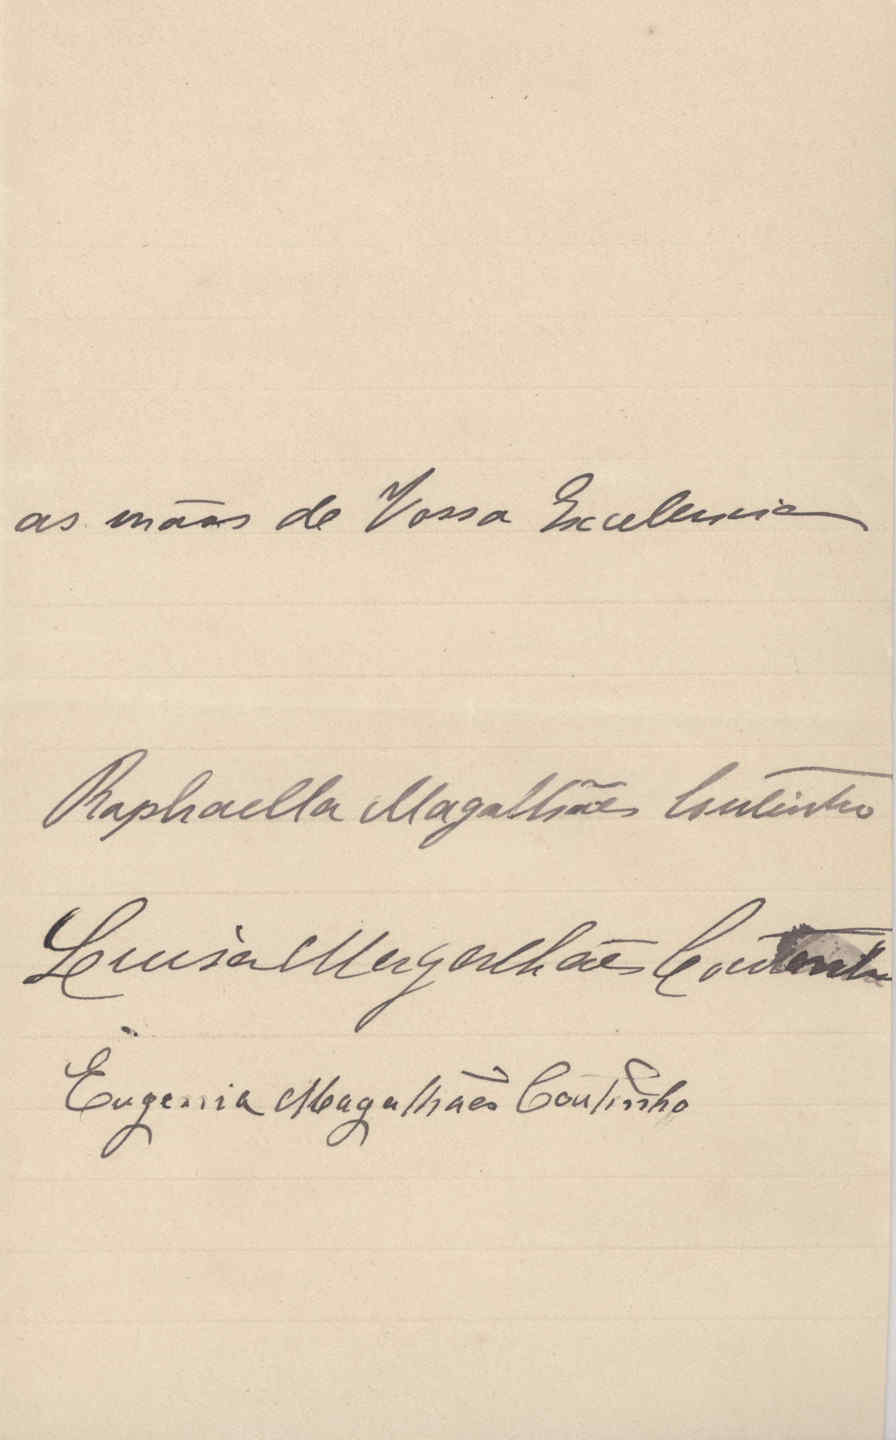 as mãos de Vossa Excelencia
Raphaella Magalhães Coutinho
Luisa Magalhães Coutinho
Eugenia Magalhães Coutinho